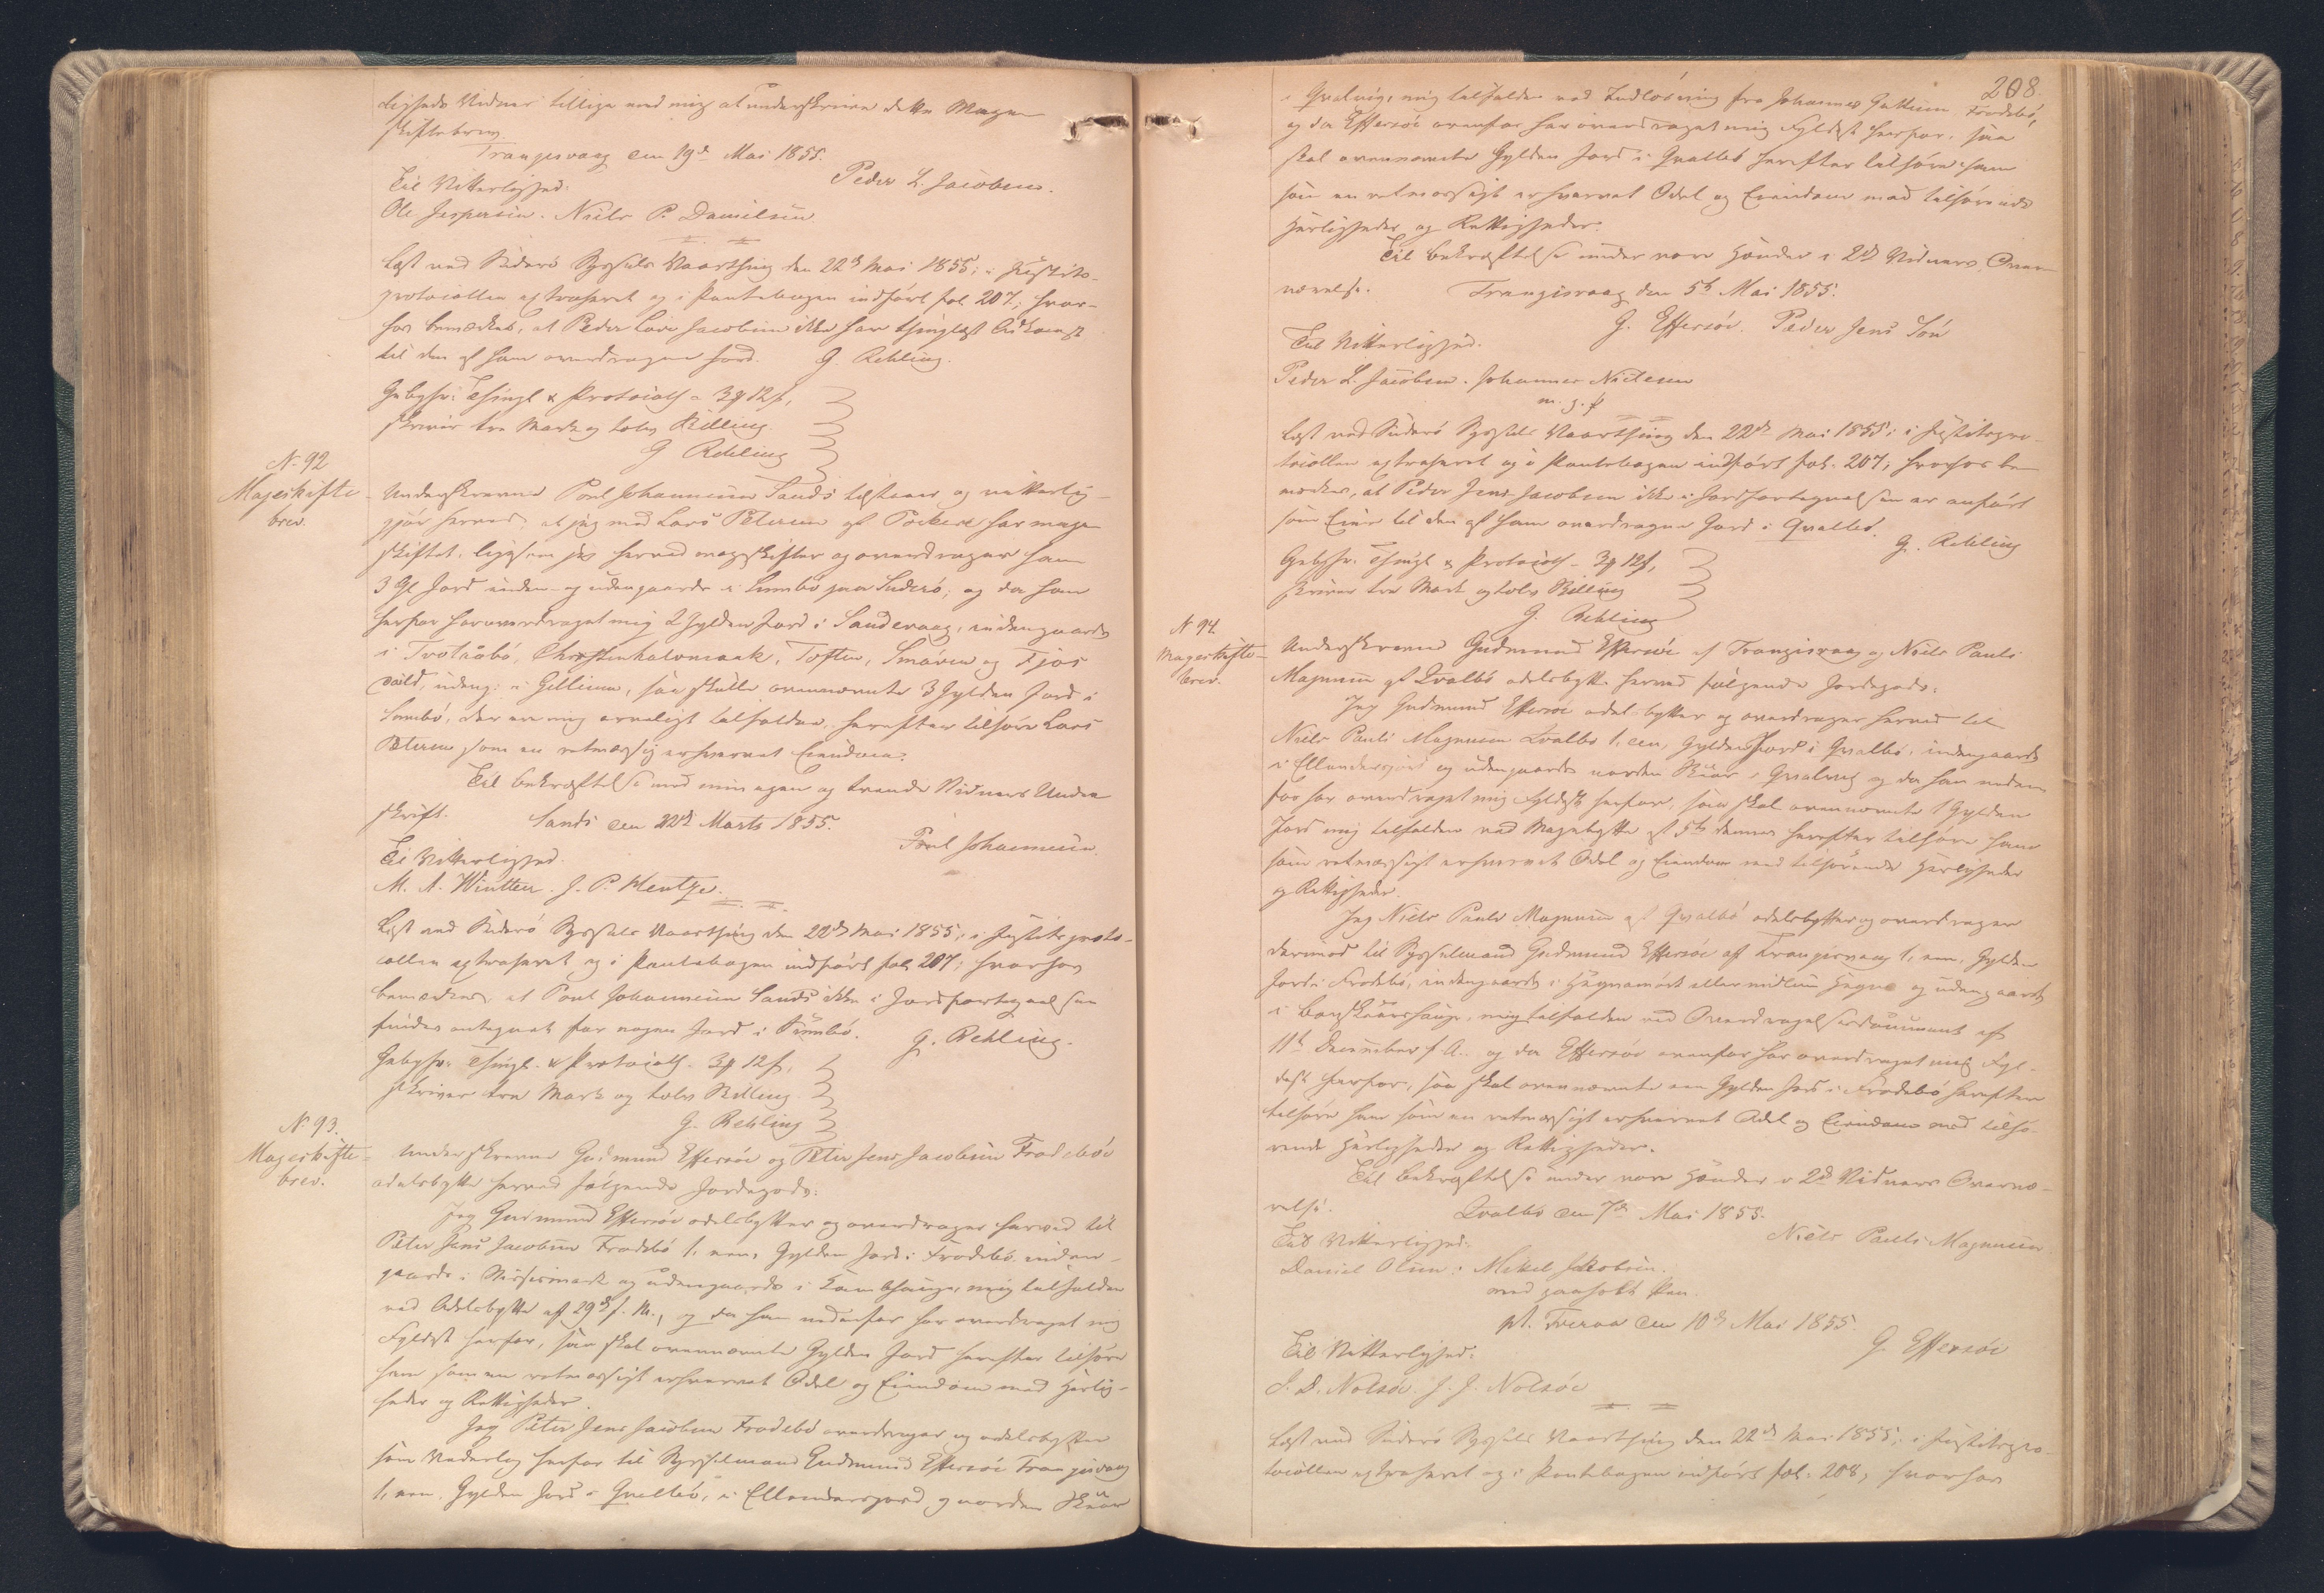 ligheds Vidner tillige med mig at underskrive dette Mage-
skiftebrev.
Trangisvaag den 19de Mai 1855.
Til Vitterlighed: Peder L. Jacobsen.
Ole Jespersen. Niels P. Danielsen
Læst ved Suderø Syssels Vaarthing den 22de Mai 1855; i Justits-
protocollen extraheret og i Pantebogen indført fol. 207; hvor-
hos bemærkes, at Peder Lars Jacobsen ikke har thinglæst Adkomst
til den af ham overdragne Jord. G. Rehling.
Gebyhr: Thingl. & Protocoll. = 3 ₰ 12 s,
skriver tre Mark og tolv Skilling.
G Rehling
N. 92
Mageskifte-
brev.
Underskrevne Poul Johannesen Sands tilstaaer og vitterlig-
gjør herved, at jeg med Lars Petersen af Porkere har mage-
skiftet, ligesom jeg herved mageskifter og overdrager ham
3 Gl Jord inden- og udengaards i Sumbø paa Suderø; og da ham
herfor har overdraget mig 2 Gylden Jord i Sandevaag, indengaards
i Trolaabø, Toften, Smaaven og Fjos
udeng. i Gillium, saa skulle ovennævnte 3 Gylden Jord i
Sumbø, der er mig arveligt tilfalden, herefter tilhøre Lars
Petersen som en retmæssig erhvervet Eiendom.
Til Bekræftelse med min egen og tvende Vidners Under-
skrift. Sands den 22de Marts 1855.
Til Vitterlighed. Poul Johannesen.
M. A. Winther. J. P. Hentze.
Læst ved Suderø Syssels Vaarthing den 22de Mai 1855; i Justitsproto-
collen extraheret og i Pantebogen indført fol. 207; hvorhos
bemærkes, at Poul Johannesen Sands ikke i Jordfortegnelsen
findes antegnet for nogen Jord i Sumbø. G. Rehling.
Gebyhr: Thingl. & Protocoll. 3 ₰ 12 s,
skriver tre Mark og tolv Skilling.
G. Rehling
N. 93.
Mageskifte-
brev.
Underskrevne Gudmund Effersøe og Peter Jens Jacobsen Frodebøe
odelsbytte herved følgende Jordegods:
Jeg Gudmund Effersøe odelsbytter og overdrager herved til
Peter Jens Jacobsen Frodebø 1, een, Gylden Jord i Frodebø inden-
gaards i og udengaards i mig tilfalden
ved Odelsbytte af 29de f. M., og da ham nedenfor har overdraget mig
Fyldest herfor, saa skal ovennævnte Gylden Jord herefter tilhøre
ham som en retmæssigt erhvervet Odel og Eiendom med Herlig-
heder og Rettigheder.
Jeg Peter Jens Jacobsen Frodebø overdrager og odelsbytter
som Vederlag herfor til Sysselmand Gudmund Effersøe Trangisvaag
1, een, Gylden Jord i Qvalbø, i Ellendersgjord, og norden Skaar
208.
i Qvalvig, mig tilfalden ved Indløsning fra Johannes Guttesen Frodebø,
og da Effersøe ovenfor har overdraget mig Fyldest herfor, saa
skal ovennævnte Gylden Jord i Qvalbø herefter tilhøre ham
som en retmæssigt erhvervet Odel og Eiendom med tilhørende
Herligheder og Rettigheder.
Til Bekræftelse under vore Hænder i 2de Vidners Over-
værelse. Trangisvaag den 5te Mai 1855.
G. Effersøe. Peder Jens Søn
Til Vitterlighed.
Peder L. Jacobsen. Johannes Nielsen
m. g. p
Læst ved Suderø Syssels Vaarthing den 22de Mai 1855; i Justitspro-
tocollen extraheret og i Pantebogen indført fol. 207; hvorhos be-
mærkes, at Peder Jens Jacobsen ikke i Jordfortegnelsen er anført
som Eier til den af ham overdragne Jord i Qvalbø. G. Rehling
Gebyhr: Thingl. & Protocoll. 3 ₰ 12 s,
skriver tre Mark og tolv Skilling
G. Rehling
N 94.
Mageskifte-
brev.
Underskrevne Gudmund Effersøe af Trangisvaag og Niels Pauli
Magnussen af Qvalbø odelsbytte herved følgende Jordegods:
Jeg Gudmund Effersøe odelsbytter og overdrager herved til
Niels Pauli Magnussen Qvalbø 1, een, Gylden Jord i Qvalbø, indengaards
i Ellendersgjord og udengaards norden Skaar i Qvalvig og da han neden-
for har overdraget mig Fyldest herfor, saa skal ovennævnte 1 Gylden
Jord mig tilfalden ved Magebytte af 5te dennes herefter tilhøre ham
som retmæssigt erhvervet Odel og Eiendom med tilhørende Herligheder
og Rettigheder.
Jeg Niels Pauli Magnussen af Qvalbø odelsbytter og overdrager
derimod til Sysselmand Gudmund Effersøe af Trangisvaag 1, een, Gylden
Jord i Frodebø, indengaards i eller midlum Hegne og udengaards
i mig tilfalden ved Overdragelsesdocument af
11te December f. A., og da Effersøe ovenfor har overdraget mig Fyl-
dest herfor, saa skal ovennævnte een Gylden Jord i Frodebø herefter
tilhøre ham som en retmæssigt erhvervet Odel og Eiendom med tilhø-
rende Herligheder og Rettigheder.
Til Bekræftelse under vore Hænder i 2de Vidners Overvæ-
relse. Qvalbø den 7de Mai 1855.
Til Vitterlighed: Niels Pauli Magnussen
Daniel Olsen. Mikel Jacobsen.
med paaholdt Pen.
pt. Tveraa den 10de Mai 1855.
Til Vitterlighed: G. Effersøe
J. D. Nolsøe. J. J. Nolsøe
Læst ved Suderø Syssels Vaarthing den 22de Mai 1855; i Justitspro-
tocollen extraheret og i Pantebogen indført fol. 208; hvorhos